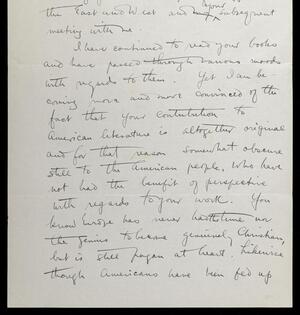 the East and West and upon my subsequent
meeting with me.
I have continued to read your books
and have passed through various moods
with regards to them. Yet I am be-
coming more and more convinced of the
fact that your contribution to
American literature is altogether original
and for that reason somewhat obscure
still to the American people, who have
not had the benefit of perspective
with regards to your work. You
know Europe has never had time nor
the genius to become genuinely Christian,
but is still pagan at heart. Likewise
though Americans have been fed up